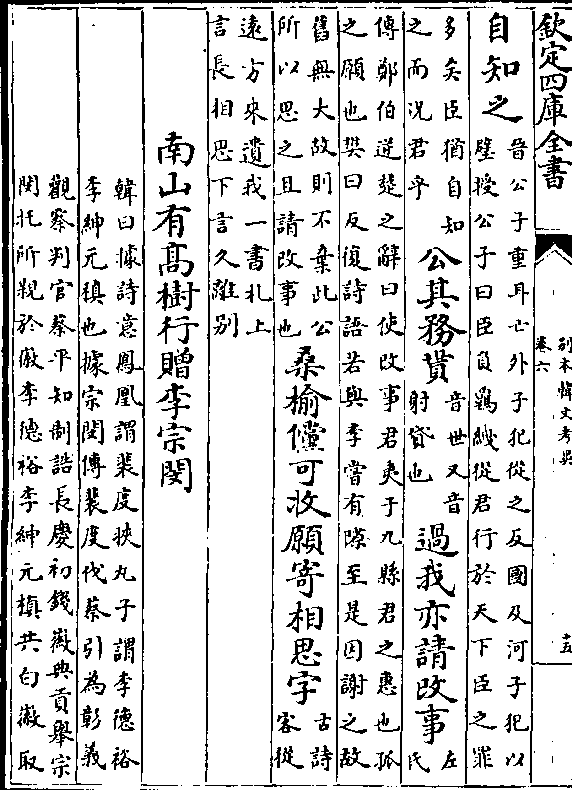 欽定四庫全書
别本韓文考異
卷六
十五
自知之
晉公子重耳亡外子犯從之反國及河子犯以
璧授公子曰臣負羈紲從君行於天下臣之罪
多矣臣猶自知
之而况君乎
公其務貰
音世又音
射貸也
過我亦請改事
左
氏
傳鄭伯逆楚之辭曰使改事君夷于九縣君之惠也孤
之願也樊曰反復詩語若與季嘗有隙至是因謝之故
舊無大故則不棄此公
所以思之且請改事也
桑榆儻可收願寄相思字
古詩
客從
遠方來遺我一書札上
言長相思下言久離别
南山有高樹行贈李宗閔
韓曰據詩意鳳凰謂裴度挾丸子謂李德裕
李紳元稹也據宗閔傳裴度伐蔡引為彰義
觀察判官蔡平知制誥長慶初錢徽典貢舉宗
閔托所親於徽李德裕李紳元稹共白徽取